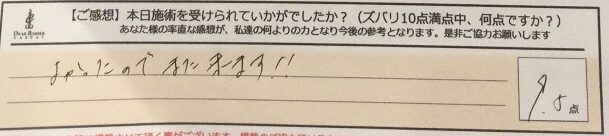 DEAR BARBER
【ご感想】本日施術を受けられていかがでしたか？（ズバリ10点満点中、何点ですか？）
あなた様の率直な感想が、私達の何よりの力となり今後の参考となります。是非ご協力お願いします
よかったので また来ます!!
点